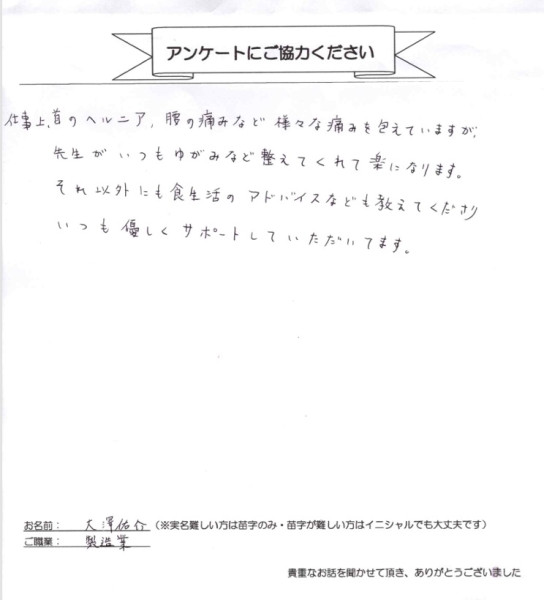 アンケートにご協力ください
仕事上、首のヘルニア、腰の痛みなど様々な痛みを包えていますが、
先生がいつもゆがみなど整えてくれて楽になります。
それ以外にも食生活のアドバイスなども教えてくださり
いつも優しくサポートしていただいてます。
お名前： 大澤佑介 （※実名難しい方は苗字のみ・苗字が難しい方はイニシャルでも大丈夫です）
ご職業： 製造業
貴重なお話を聞かせて頂き、ありがとうございました